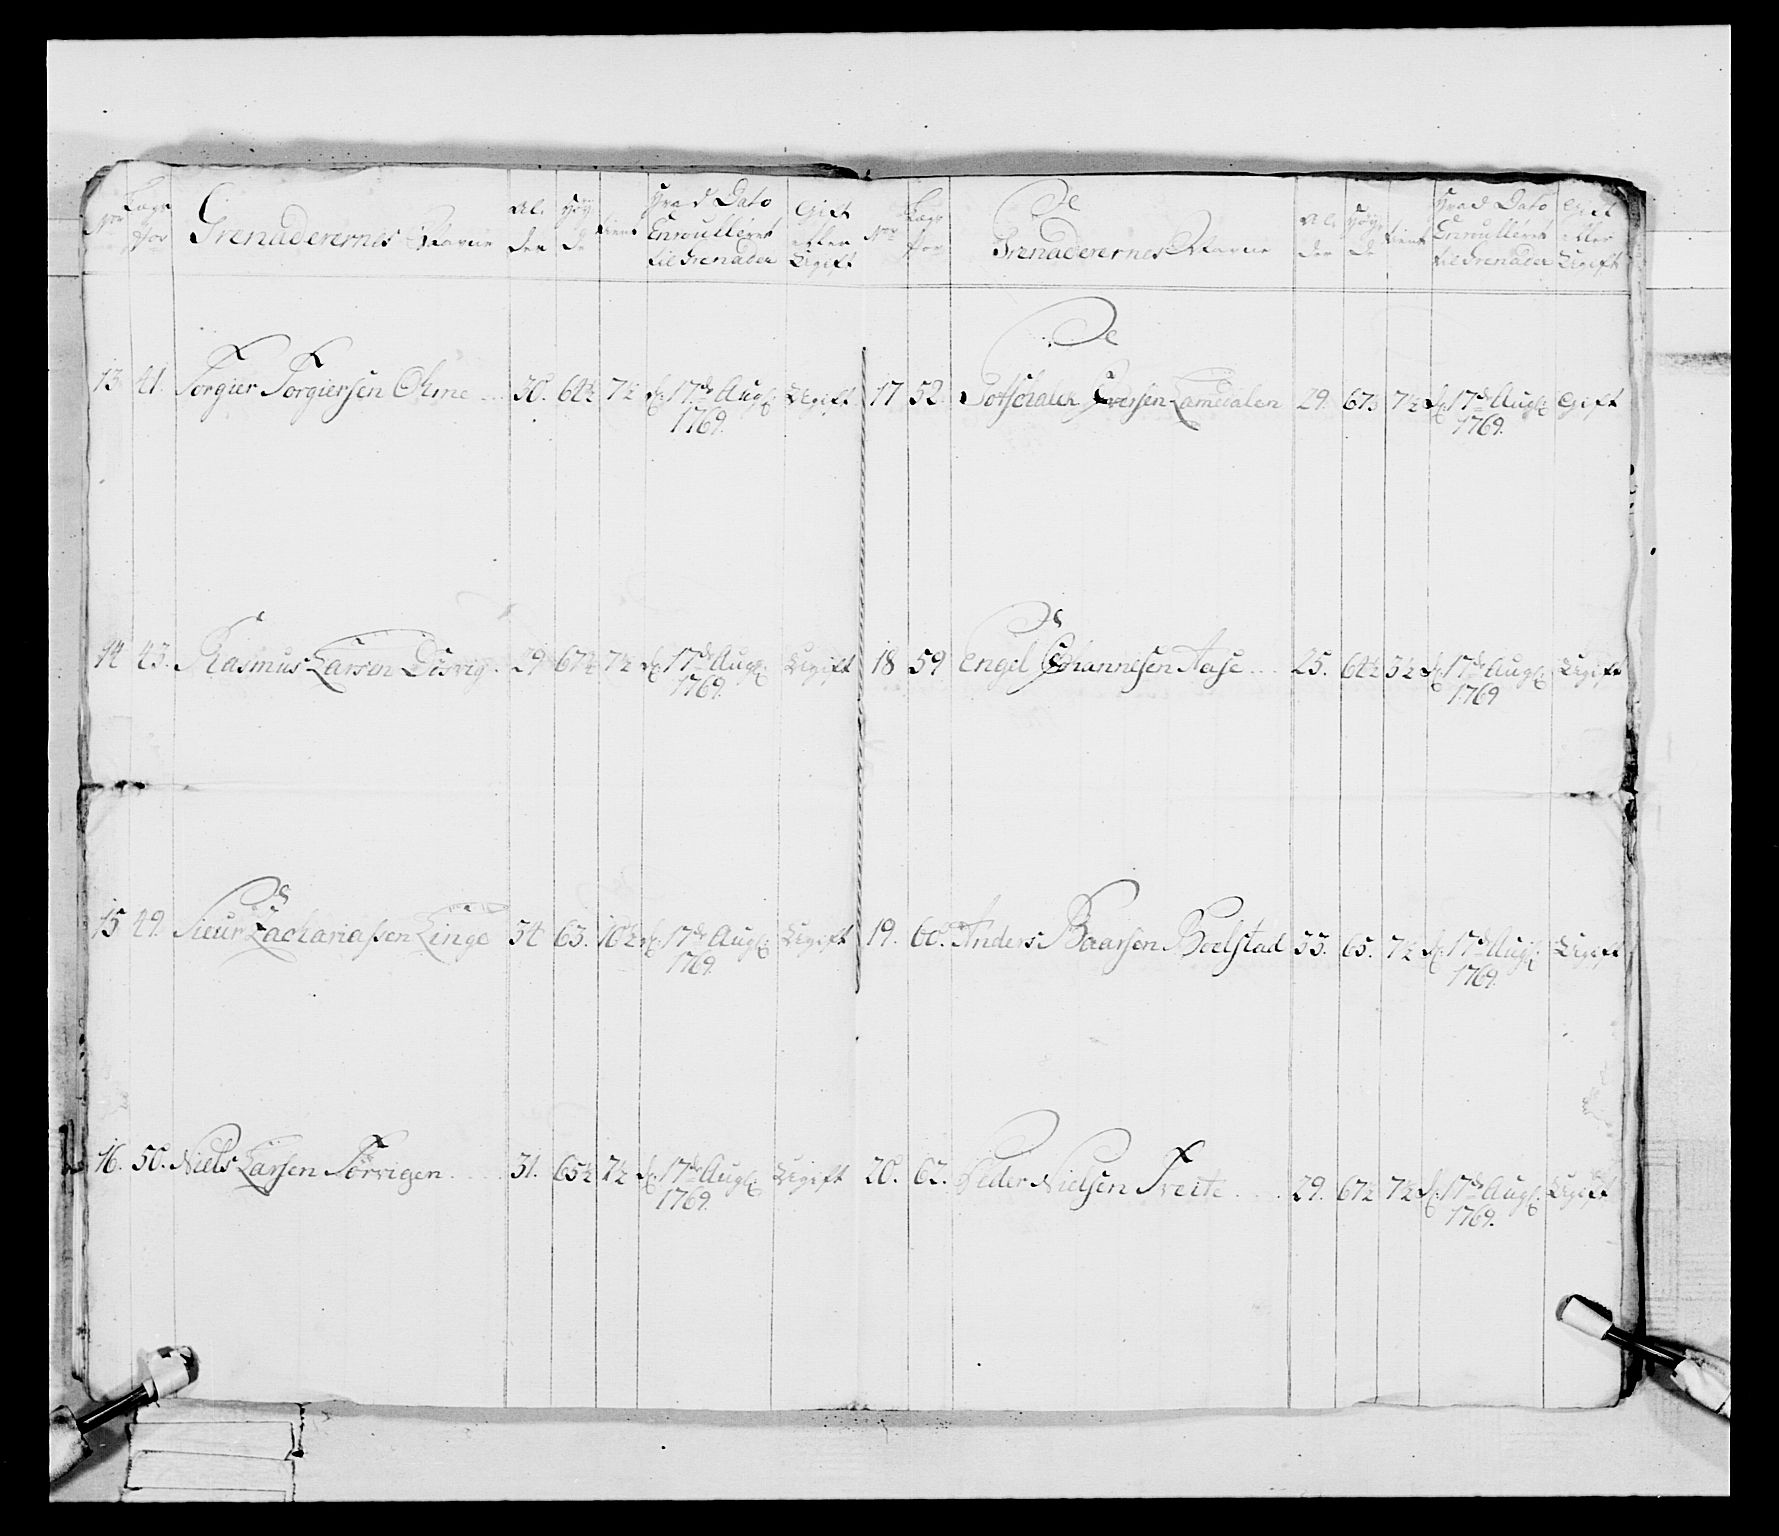 Nor Lægs Nor Grenaderernes Navne Al¡ der Høy¡ de tient Hvad Dato Enroulleret til Grenader Gift eller Ugift
13 41. Torgier Torgiersen Ohme 30. 64½ 7½ d: 17de Augl: Ugift
1769.
14 43. Rasmus Larsen Disvig. 29 67½ 7½ d: 17de Augl: Ugift
1769.
15 49. Sieur Zachariassen Linge 34 63. 10½ d: 17de Augl: Ugift
1769.
16. 50. Niels Larsen Tørvigen 31. 65½ 7½ d: 17de Augl: Ugift
1769.
Nor Lægs Nor Grenaderernes Navne Al¡ der Høy¡ de tient Hvad Dato Enroulleret til Grenader Gift eller Ugift
17 52. Gotschalch Iversen Lamedalen 29. 67½ 7½ d: 17de Augl: Gift
1769.
18 59 Engel Johannesen Aase 25. 64½ 3½ d: 17de Augl: Ugift
1769
19. 60. Anders Baarsen Boelstad 33. 65. 7½ d: 17de Augl: Ugift
1769.
20. 62. Peder Nielsen Tveite 29. 67½ 7½ d: 17de Augl: Ugift
1769.